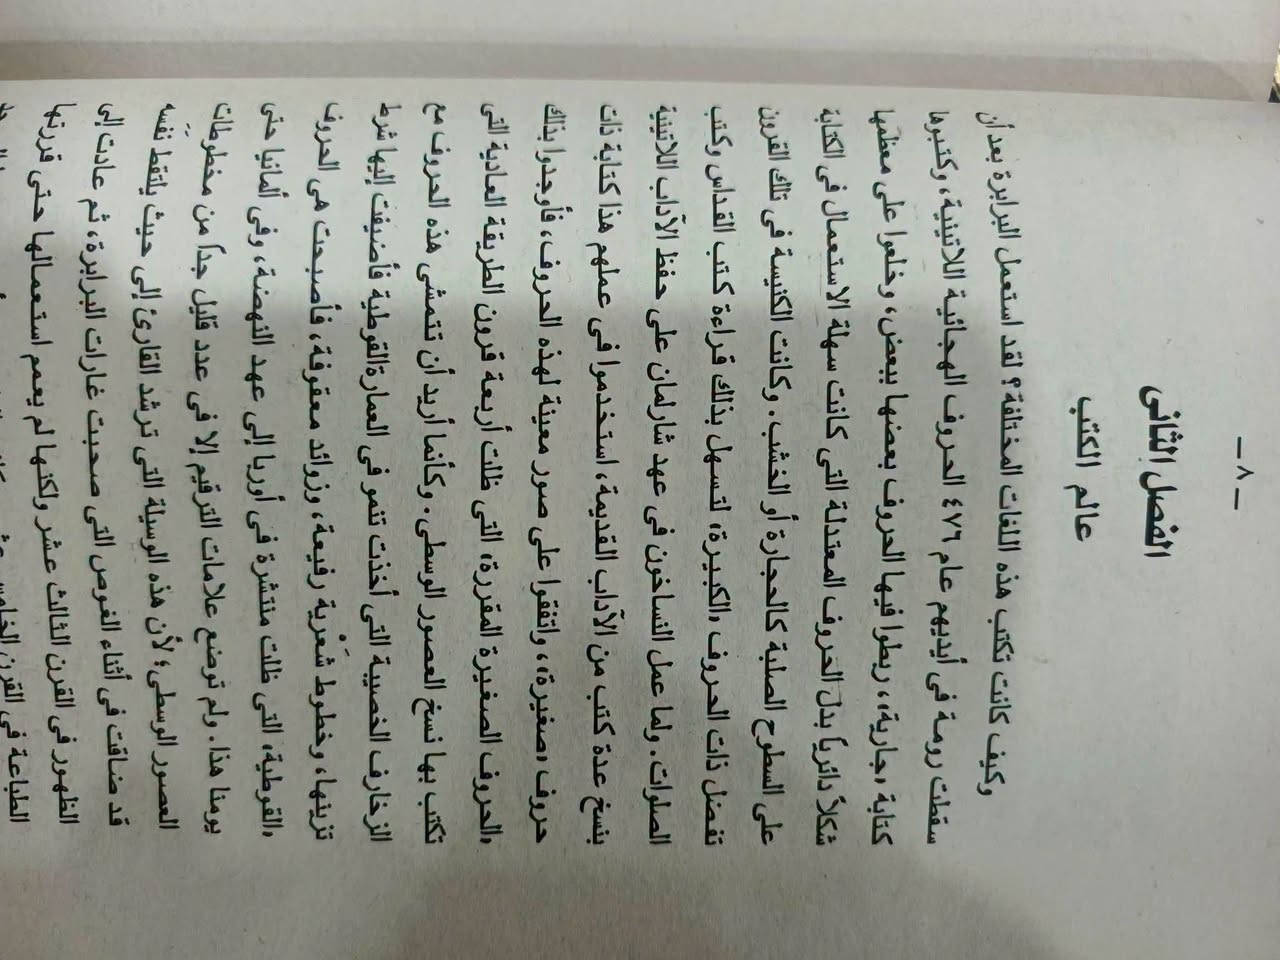 — ٨ —
الفصل الثانى
عالم الكتب
وكيف كانت تكتب هذه اللغات المختلفة؟ لقد استعمل البرابرة بعد أن
سقطت رومة فى أيديهم عام ٤٧٦ الحروف الهجائية اللاتينية، وكتبوها
كتابة «جارية»، ربطوا فيها الحروف بعضها ببعض، وخلعوا على معظمها
شكلاً دائرياً بدل الحروف المعتدلة التى كانت سهلة الاستعمال فى الكتابة
على السطوح الصلبة كالحجارة أو الخشب. وكانت الكنيسة فى تلك القرون
تفضل ذات الحروف «الكبيرة» لتسهل بذلك قراءة كتب القداس وكتب
الصلوات. ولما عمل النساخون فى عهد شارلمان على حفظ الآداب اللاتينية
بنسخ عدة كتب من الآداب القديمة، استخدموا فى عملهم هذا كتابة ذات
حروف «صغيرة»، واتفقوا على صور معينة لهذه الحروف، فأوجدوا بذلك
«الحروف الصغيرة المقررة» التى ظلت أربعة قرون الطريقة العادية التى
تكتب بها نسخ العصور الوسطى. وكأنما أريد أن تتمشى هذه الحروف مع
الزخارف الخصيبة التى أخذت تنمو فى العمارة القوطية فأضيفت إليها شرط
تزينها، وخطوط شَعْرية رفيعة، وزوائد معقوفة، فأصبحت هى الحروف
«القوطية» التى ظلت منتشرة فى أوربا إلى عهد النهضة، وفى ألمانيا حتى
يومنا هذا. ولم توضع علامات الترقيم إلا فى عدد قليل جداً من مخطوطات
العصور الوسطى؛ لأن هذه الوسيلة التى ترشد القارئ إلى حيث يلتقط نفسه
قد ضاعت فى أثناء الفوضى التى صحبت غارات البرابرة، ثم عادت إلى
الظهور فى القرن الثالث عشر ولكنها لم يعمم استعمالها حتى قررتها
الطباعة فى القرن الخامس